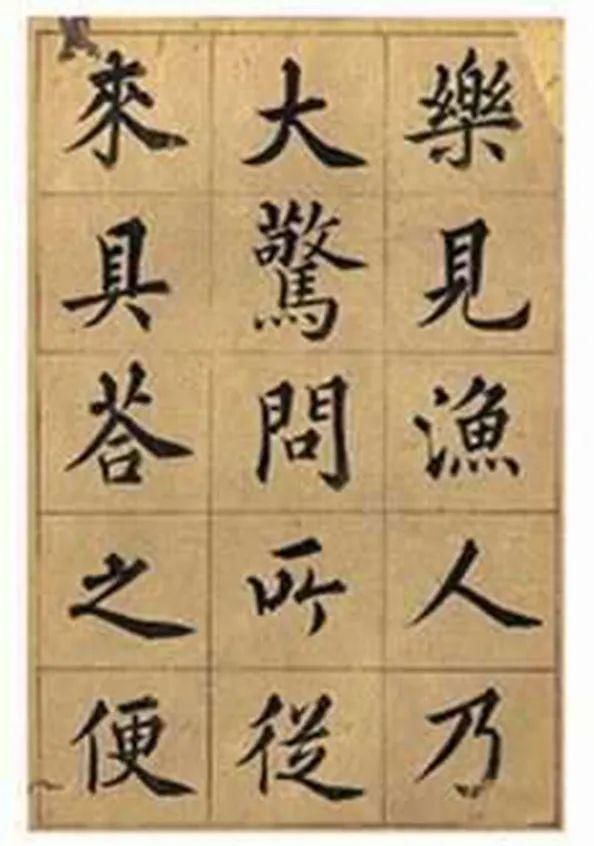 樂見漁人乃
大驚問所從
來具荅之便